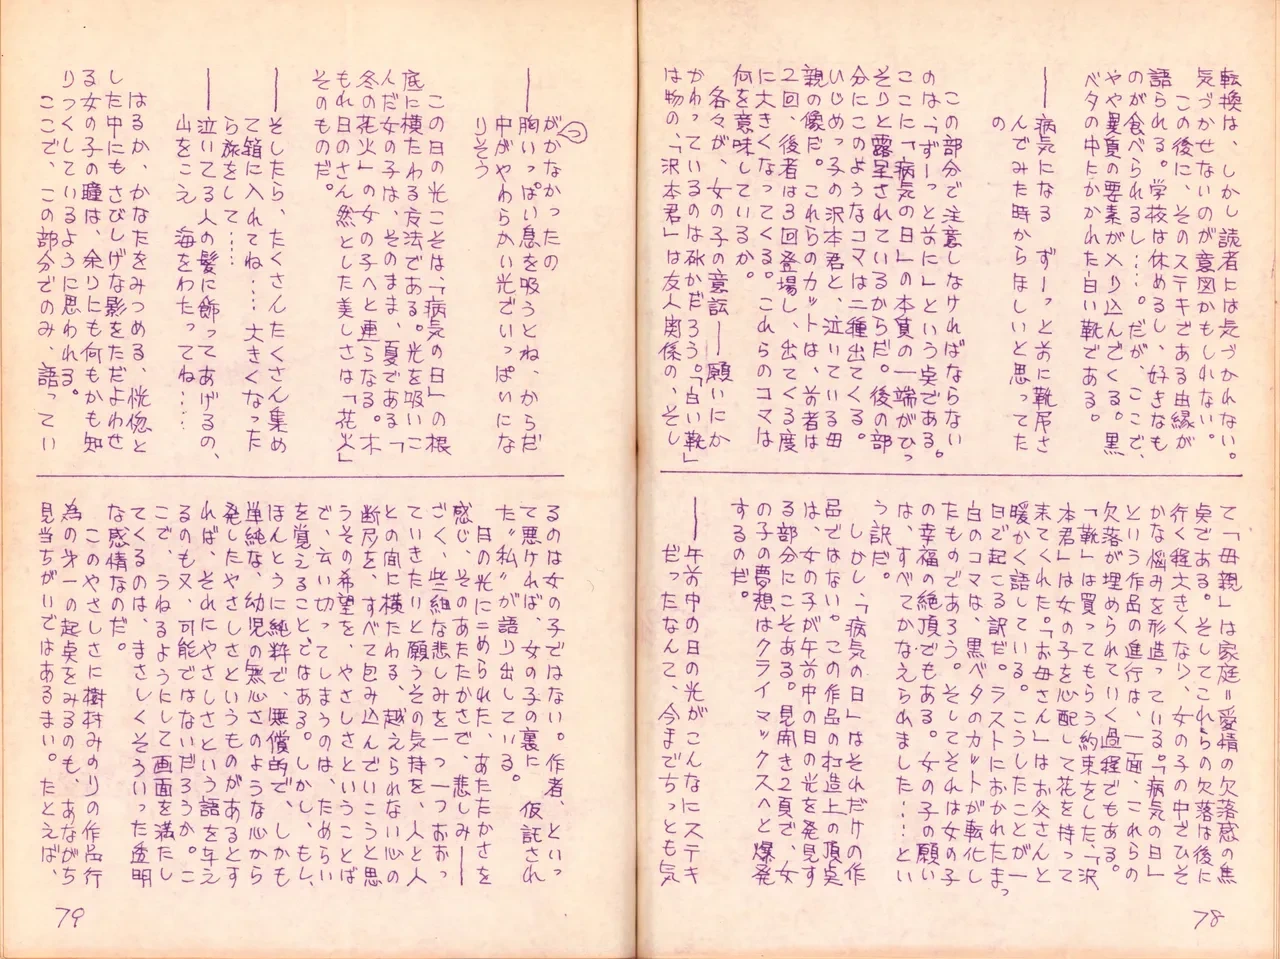 転換は、しかし読者には気づかれない。
気づかせないのが意図かもしれない。
この後に、そのステキである由縁が
語られる。学校は休めるし、好きなも
のが食べられるし……。だが、ここで、
やや異質の要素が入り込んでくる。黒
ベタの中にかかれた白い靴である。
――病気になる ずーっと前に靴屋さ
んでみた時からほしいと思ってた
の
この部分で注意しなければならない
のは、「ずーっと前に」という点である。
ここに「病気の日」の本質の一端がひっ
そりと露呈されているからだ。後の部
分にこのようなコマは二種出てくる。
いじめっ子の沢本君と、泣いている母
親の像だ。これらのカットは、前者は
2回、後者は3回登場し、出てくる度
に大きくなってくる。これらのコマは
何を意味しているか。
各々が、女の子の意訟――願いにか
かわっているのは確かだろう。「白い靴」
は物の、「沢本君」は友人関係の、そし
て「母親」は家庭=愛情の欠落感の焦
点である。そしてこれらの欠落は後に
行く程大きくなり、女の子の中でひそ
かな悩みを形造っている。「病気の日」
という作品の進行は、一面、これらの
欠落が埋められていく過程でもある。
「靴」は買ってもらう約束をした、「沢
本君」は女の子を心配して花を持って
来てくれた。「お母さん」はお父さんと
暖かく語している。こうしたことが一
日で起こる訳だ。ラストにおかれたまっ
白のコマは、黒ベタのカットが転化し
たものであろう。そしてそれは女の子
の幸福の絶頂でもある。女の子の願い
は、すべてかなえられました……とい
う訳だ。
しかし、「病気の日」はそれだけの作
品ではない。この作品の構造上の頂点
は、女の子が午前中の日の光を発見す
る部分にこそある。見開き2頁で、女
の子の夢想はクライマックスへと爆発
するのだ。
――午前中の日の光がこんなにステキ
だったなんて、今までちっとも気
78
がつかなかったの
――胸いっぱい息を吸うとね、からだ
中がやわらかい光でいっぱいにな
りそう
この日の光こそは、「病気の日」の根
底に横たわる方法である。光を吸いこ
んだ女の子は、そのまま、夏である「
冬の花火」の女の子へと連らなる。木
もれ日のさん然とした美しさは「花火」
そのものだ。
――そしたら、たくさんたくさん集め
て箱に入れてね……大きくなった
ら旅をして……
――泣いてる人の髪に飾ってあげるの、
山をこえ 海をわたってね……
はるか、かなたをみつめる、恍惚と
した中にもさびしげな影をただよわせ
る女の子の瞳は、余りにも何もかも知
りつくしているように思われる。
ここで、この部分でのみ、語ってい
るのは女の子ではない。作者、といっ
て悪ければ、女の子の裏に 仮託され
た“私”が語り出している。
日の光にこめられた、あたたかさを
感じ、そのあたたかさで、悲しみ――
ざく、些細な悲しみを一つ一つおおっ
ていきたいと願うその気持を、人と人
との間に横たわる、越えられない心の
断尺を、すべて包み込んでいこうと思
うその希望を、やさしさということば
で、云い切ってしまうのは、ためらい
を覚えることではある。しかし、もし、
ほんとうに純粋で、無償的で、しかも
単純な、幼児の無心さのような心から
発したやさしさというものがあるとす
れば、それにやさしさという語を与え
るのも又、可能ではないだろうか。こ
こで、うねるようにして画面を満たし
てくるのは、まさしくそういった透明
な感情なのだ。
このやさしさに樹村みのりの作品行
為の才一の起点をみるのも、あながち
見当ちがいではあるまい。たとえば、
79